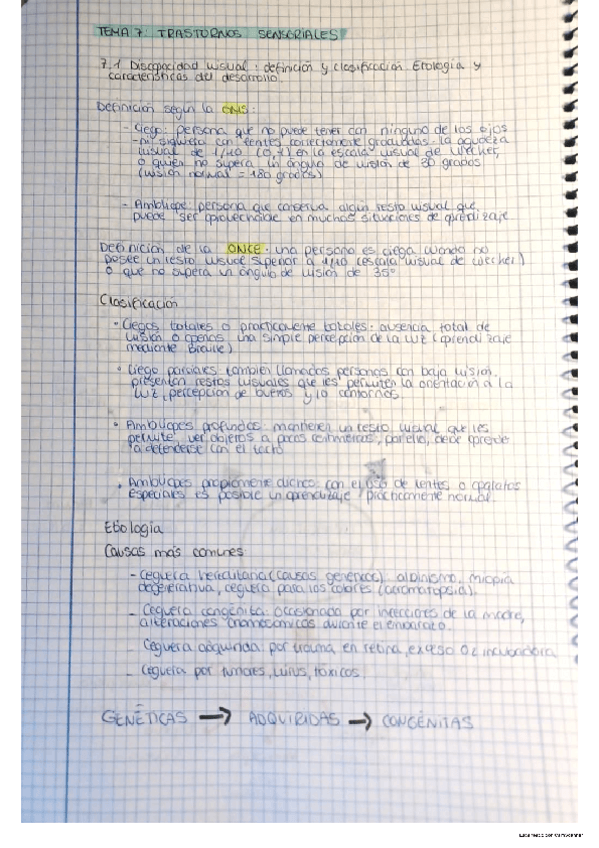 TEMA 7: TRASTORNOS SENSORIALES
7.1 Discapacidad visual: definición y clasificación. Etiología y
características del desarrollo.
Definición según la OMS:
- Ciego: persona que no puede tener con ninguno de los ojos
-ni siquiera con lentes correctamente graduadas- la agudeza
visual de 1/10 (0,1) en la escala visual de Wecker,
o quien no supera un ángulo de visión de 30 grados
(visión normal = 180 grados)
- Ambliope: persona que conserva algún resto visual que
puede ser aprovechable en muchas situaciones de aprendizaje
Definición de la ONCE: una persona es ciega cuando no
posee un resto visual superior a 1/10 (escala visual de Wecker)
o que no supera un ángulo de visión de 35º
Clasificación
· Ciegos totales o prácticamente totales: ausencia total de
visión o apenas una simple percepción de la luz (aprendizaje
mediante Braille)
· Ciego parciales también llamados personas con baja visión,
presentan restos visuales que les permiten la orientación a la
luz, percepción de bultos y/o contornos.
· Ambliopes profundos: mantienen un resto visual que les
permite ver objetos a pocos centímetros, por ello, debe aprender
a defenderse con el tacto
· Ambliopes propiamente dichos: con el uso de lentes o aparatos
especiales es posible un aprendizaje prácticamente normal.
Etiología
Causas más comunes
- Ceguera hereditaria (causas genéticas) albinismo, miopía
degenerativa, ceguera para los colores (acromatopsia).
- Ceguera congénita: ocasionada por infecciones de la madre,
alteraciones cromosómicas durante el embarazo.
- Ceguera adquirida: por trauma en retina, exceso O2 incubadora
- Ceguera por tumores, virus, tóxicos.
GENÉTICAS → ADQUIRIDAS → CONGÉNITAS